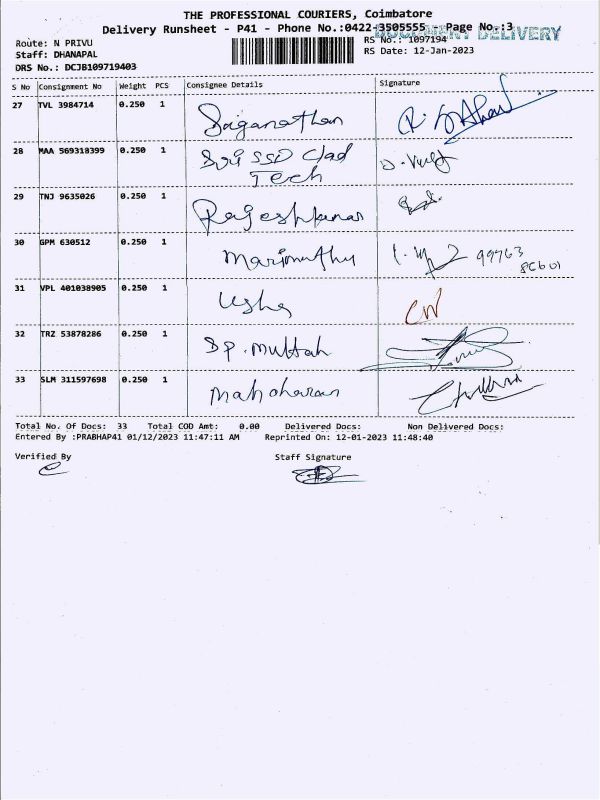 THE PROFESSIONAL COURIERS, Coimbatore
Delivery Runsheet - P41 - Phone No.:0422-3505555 - Page No.:3
DOCUMENT DELIVERY
Route: N PRIVU
RS No.: 1097194
Staff: DHANAPAL
RS Date: 12-Jan-2023
DRS No.: DCJB109719403
S No Consignment No Weight PCS Consignee Details Signature
27 TVL 3984714 0.250 1 Jaganathan
28 MAA 569318399 0.250 1 Sri SSD Clad
Tech
29 TNJ 9635026 0.250 1 Rajeshkumar
30 GPM 630512 0.250 1 Marimuthu 99763
31 VPL 401038905 0.250 1 Usha
32 TRZ 53878286 0.250 1 SP.
33 SLM 311597698 0.250 1 Manoharan
Total No. Of Docs: 33 Total COD Amt: 0.00 Delivered Docs: Non Delivered Docs:
Entered By :PRABHAP41 01/12/2023 11:47:11 AM Reprinted On: 12-01-2023 11:48:40
Verified By Staff Signature